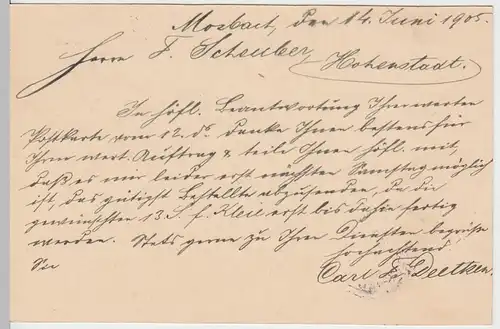 Mosbach, den 14. Juni 1905.
Herrn F. Scheuber, Hohenstadt.
In höfl. Beantwortung Ihrer werten
Postkarte vom 12. ds. danke Ihnen bestens für
Ihren wert. Auftrag & teile Ihnen höfl. mit,
daß es mir leider erst nächsten Samstag möglich
ist, das gütigst Bestellte abzusenden, da die
gewünschten 13 S. f. Kleie erst bis dahin fertig
werden. Stets gerne zu Ihren Diensten begrüße
Sie hochachtend
Carl Deetken.